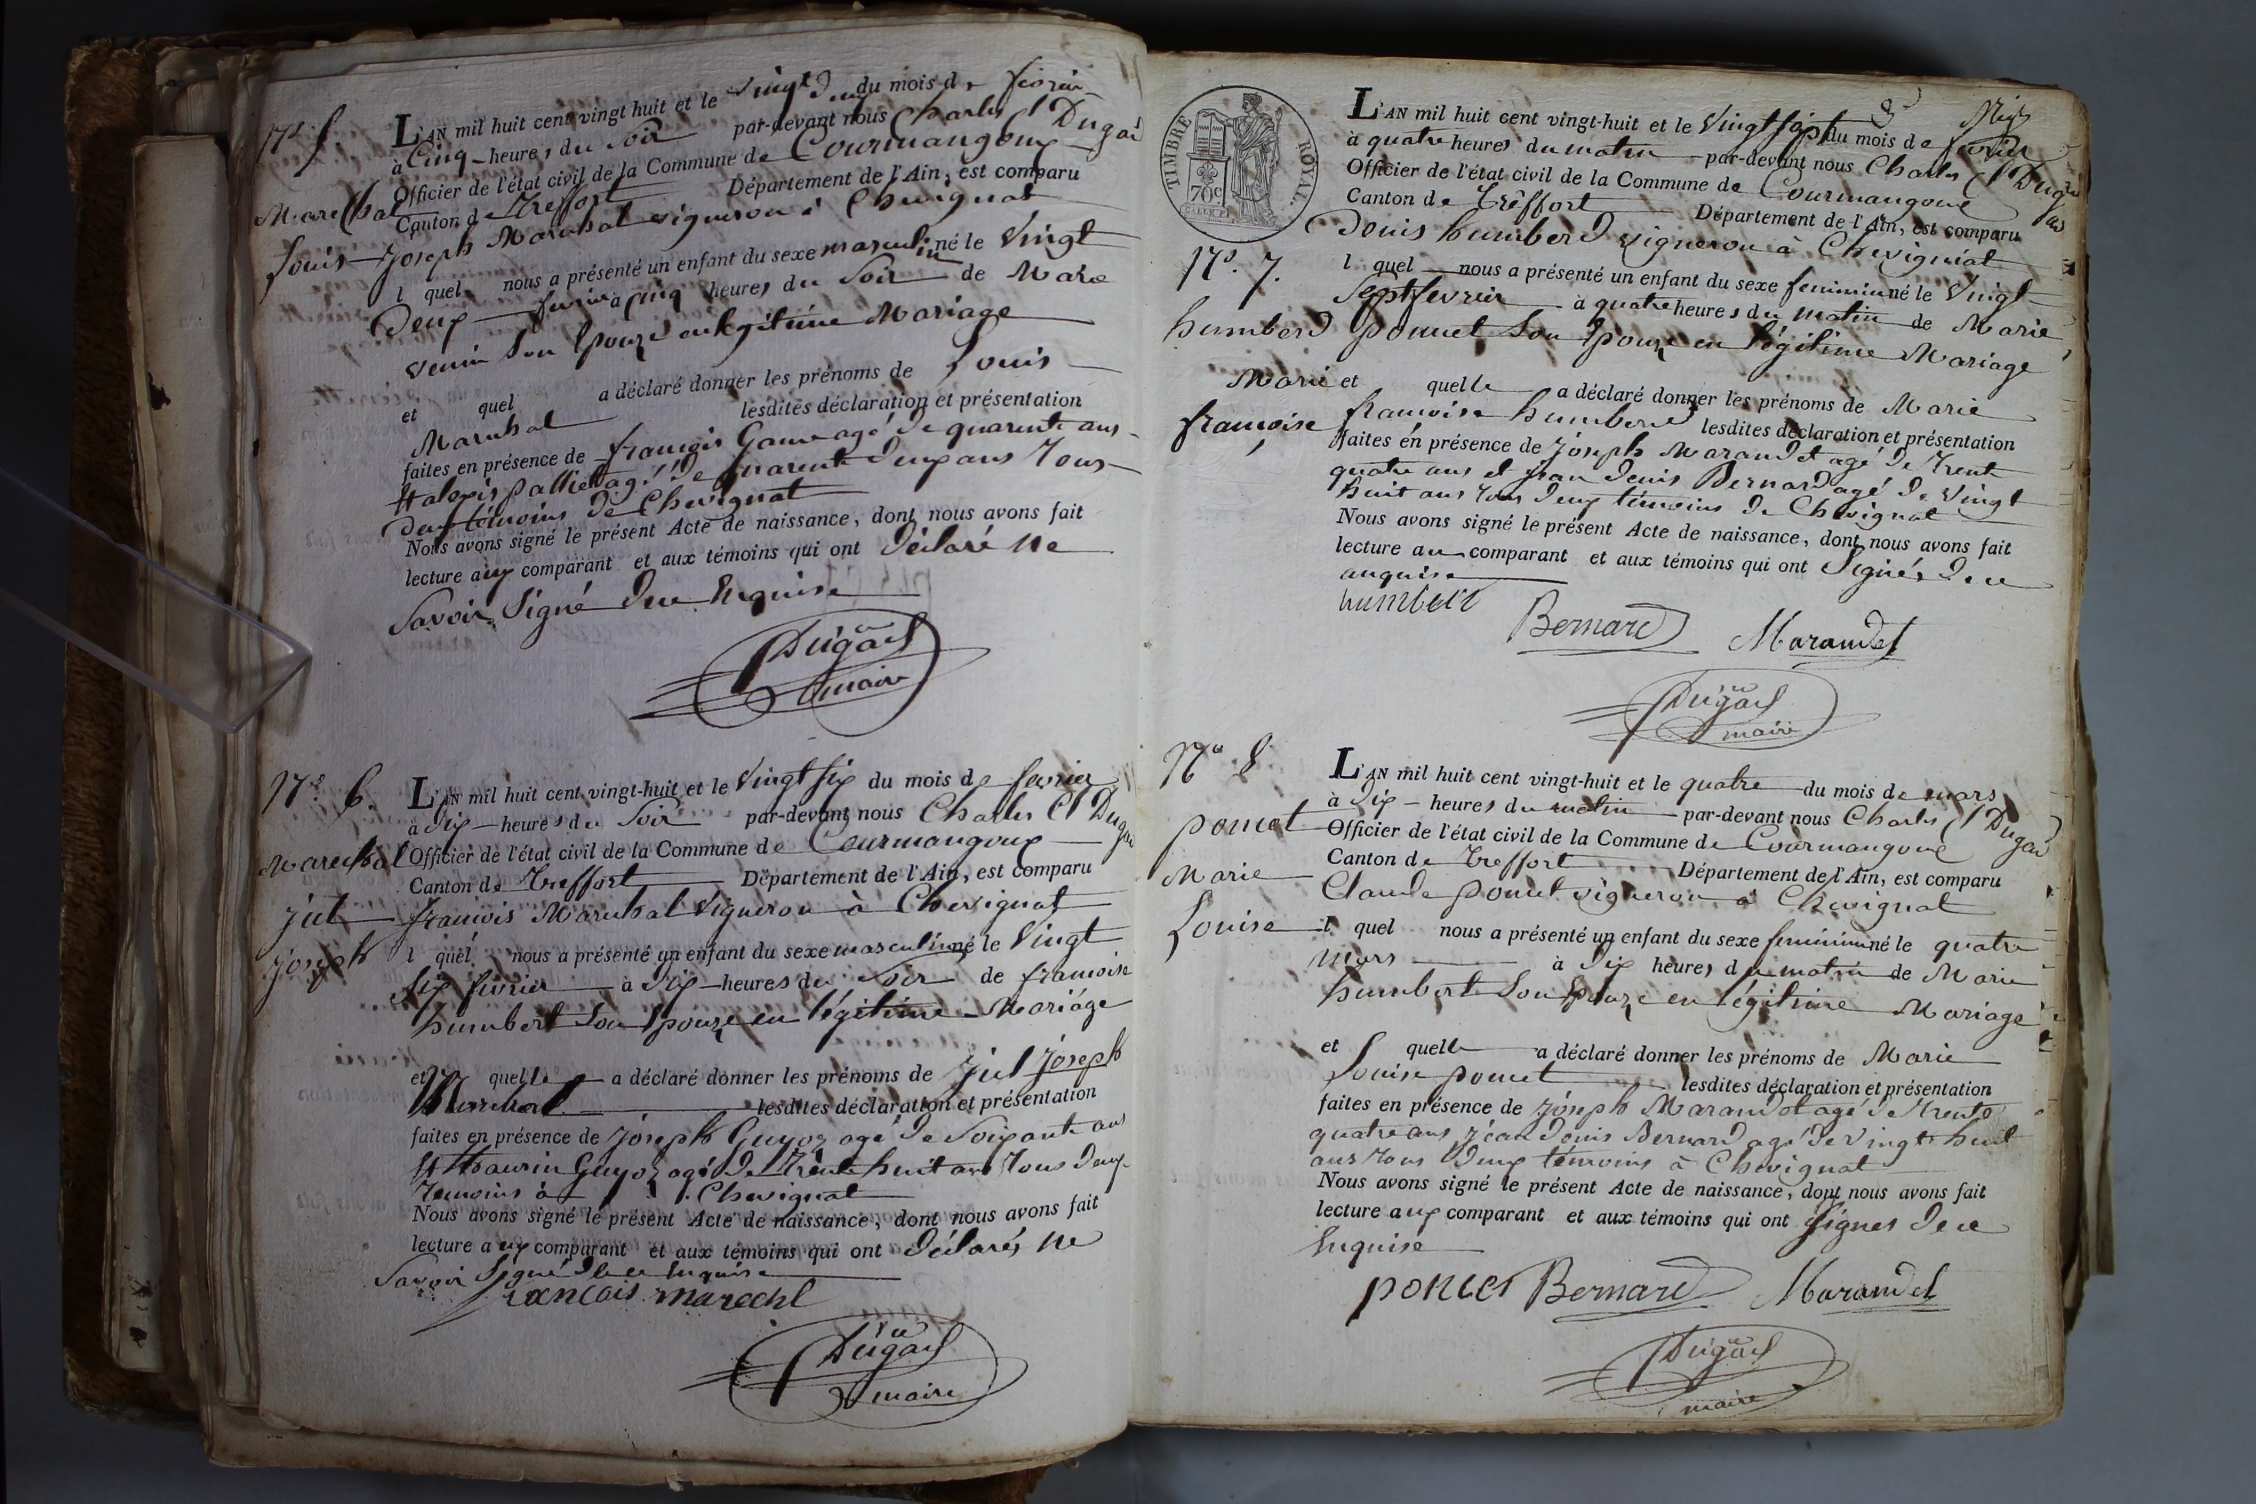 N° 5.
Marechal
Louis
L'AN mil huit cent vingt huit et le vingt deux du mois de fevrier
à Cinq heures du soir par-devant nous Charles Cl Dugad
Officier de l'état civil de la Commune de Courmangoux
Canton de Treffort Département de l'Ain, est comparu
Joseph Marechal vigneron à Chevignat
l quel nous a présenté un enfant du sexe masculin né le vingt
deux fevrier à cinq heures du soir de Marie
venin son epouze en légitime Mariage
et quel a déclaré donner les prénoms de Louis
Marechal lesdites déclaration et présentation
faites en présence de françois Gauve agé de quarente ans
et alexis palliet agé de quarente deux ans Tous
deux témoins de Chevignat
Nous avons signé le présent Acte de naissance, dont nous avons fait
lecture aux comparant et aux témoins qui ont déclaré ne
Savoir Signé de ce Enquise
Dugad
maire
N° 6.
Marechal
jul
joseph
L'AN mil huit cent vingt-huit et le vingt six du mois de fevrier
à dix heures du soir par-devant nous Charles Cl Dugad
Officier de l'état civil de la Commune de Courmangoux
Canton de Treffort Département de l'Ain, est comparu
francois Marechal vigneron à Chevignat
l quel nous a présenté un enfant du sexe masculin né le vingt
six fevrier à dix heures du soir de francoise
humbert son epouze en légitime Mariage
et quelle a déclaré donner les prénoms de jul joseph
Marechal lesdites déclaration et présentation
faites en présence de joseph Guyoz agé de soixante ans
et Thaurin Guyoz agé de Trente huit ans Tous deux
Temoins à Chevignat
Nous avons signé le présent Acte de naissance, dont nous avons fait
lecture aux comparant et aux témoins qui ont déclarés ne
Savoir Signé de ce enquise
francois marechl
Dugad
maire
TIMBRE ROYAL
70c
N° 7.
humberd
Marie
françoise
L'AN mil huit cent vingt-huit et le vingt sept du mois de fevrier
à quatre heures du matin par-devant nous Charles Cl Dugad
Officier de l'état civil de la Commune de Courmangoux
Canton de Treffort Département de l'Ain, est comparu
Denis humberd vigneron à Chevignat
l quel nous a présenté un enfant du sexe feminin né le vingt
sept fevrier à quatre heures du matin de Marie
poncet son epouze en légitime Mariage
et quelle a déclaré donner les prénoms de Marie
francoise humberd lesdites déclaration et présentation
faites en présence de joseph Marandet agé de Trente
quatre ans et jean denis Bernard agé de vingt
huit ans Tous deux témoins de Chevignat
Nous avons signé le présent Acte de naissance, dont nous avons fait
lecture au comparant et aux témoins qui ont Signés de ce
enquise
humberd
Bernard Marandet
Dugad
maire
N° 8
poncet
Marie
Louise
L'AN mil huit cent vingt-huit et le quatre du mois de mars
à dix heures du matin par-devant nous Charles Cl Dugad
Officier de l'état civil de la Commune de Courmangoux
Canton de Treffort Département de l'Ain, est comparu
Claude poncet vigneron à Chevignat
l quel nous a présenté un enfant du sexe feminin né le quatre
Mars à dix heures du matin de Marie
humbert son Epouze en légitime Mariage
et quelle a déclaré donner les prénoms de Marie
Louise poncet lesdites déclaration et présentation
faites en présence de joseph Marandet agé de Trente
quatre ans jean denis Bernard agé de vingt huit
ans Tous deux témoins à Chevignat
Nous avons signé le présent Acte de naissance, dont nous avons fait
lecture aux comparant et aux témoins qui ont signes de ce
Enquise
poncet Bernard Marandet
Dugad
maire